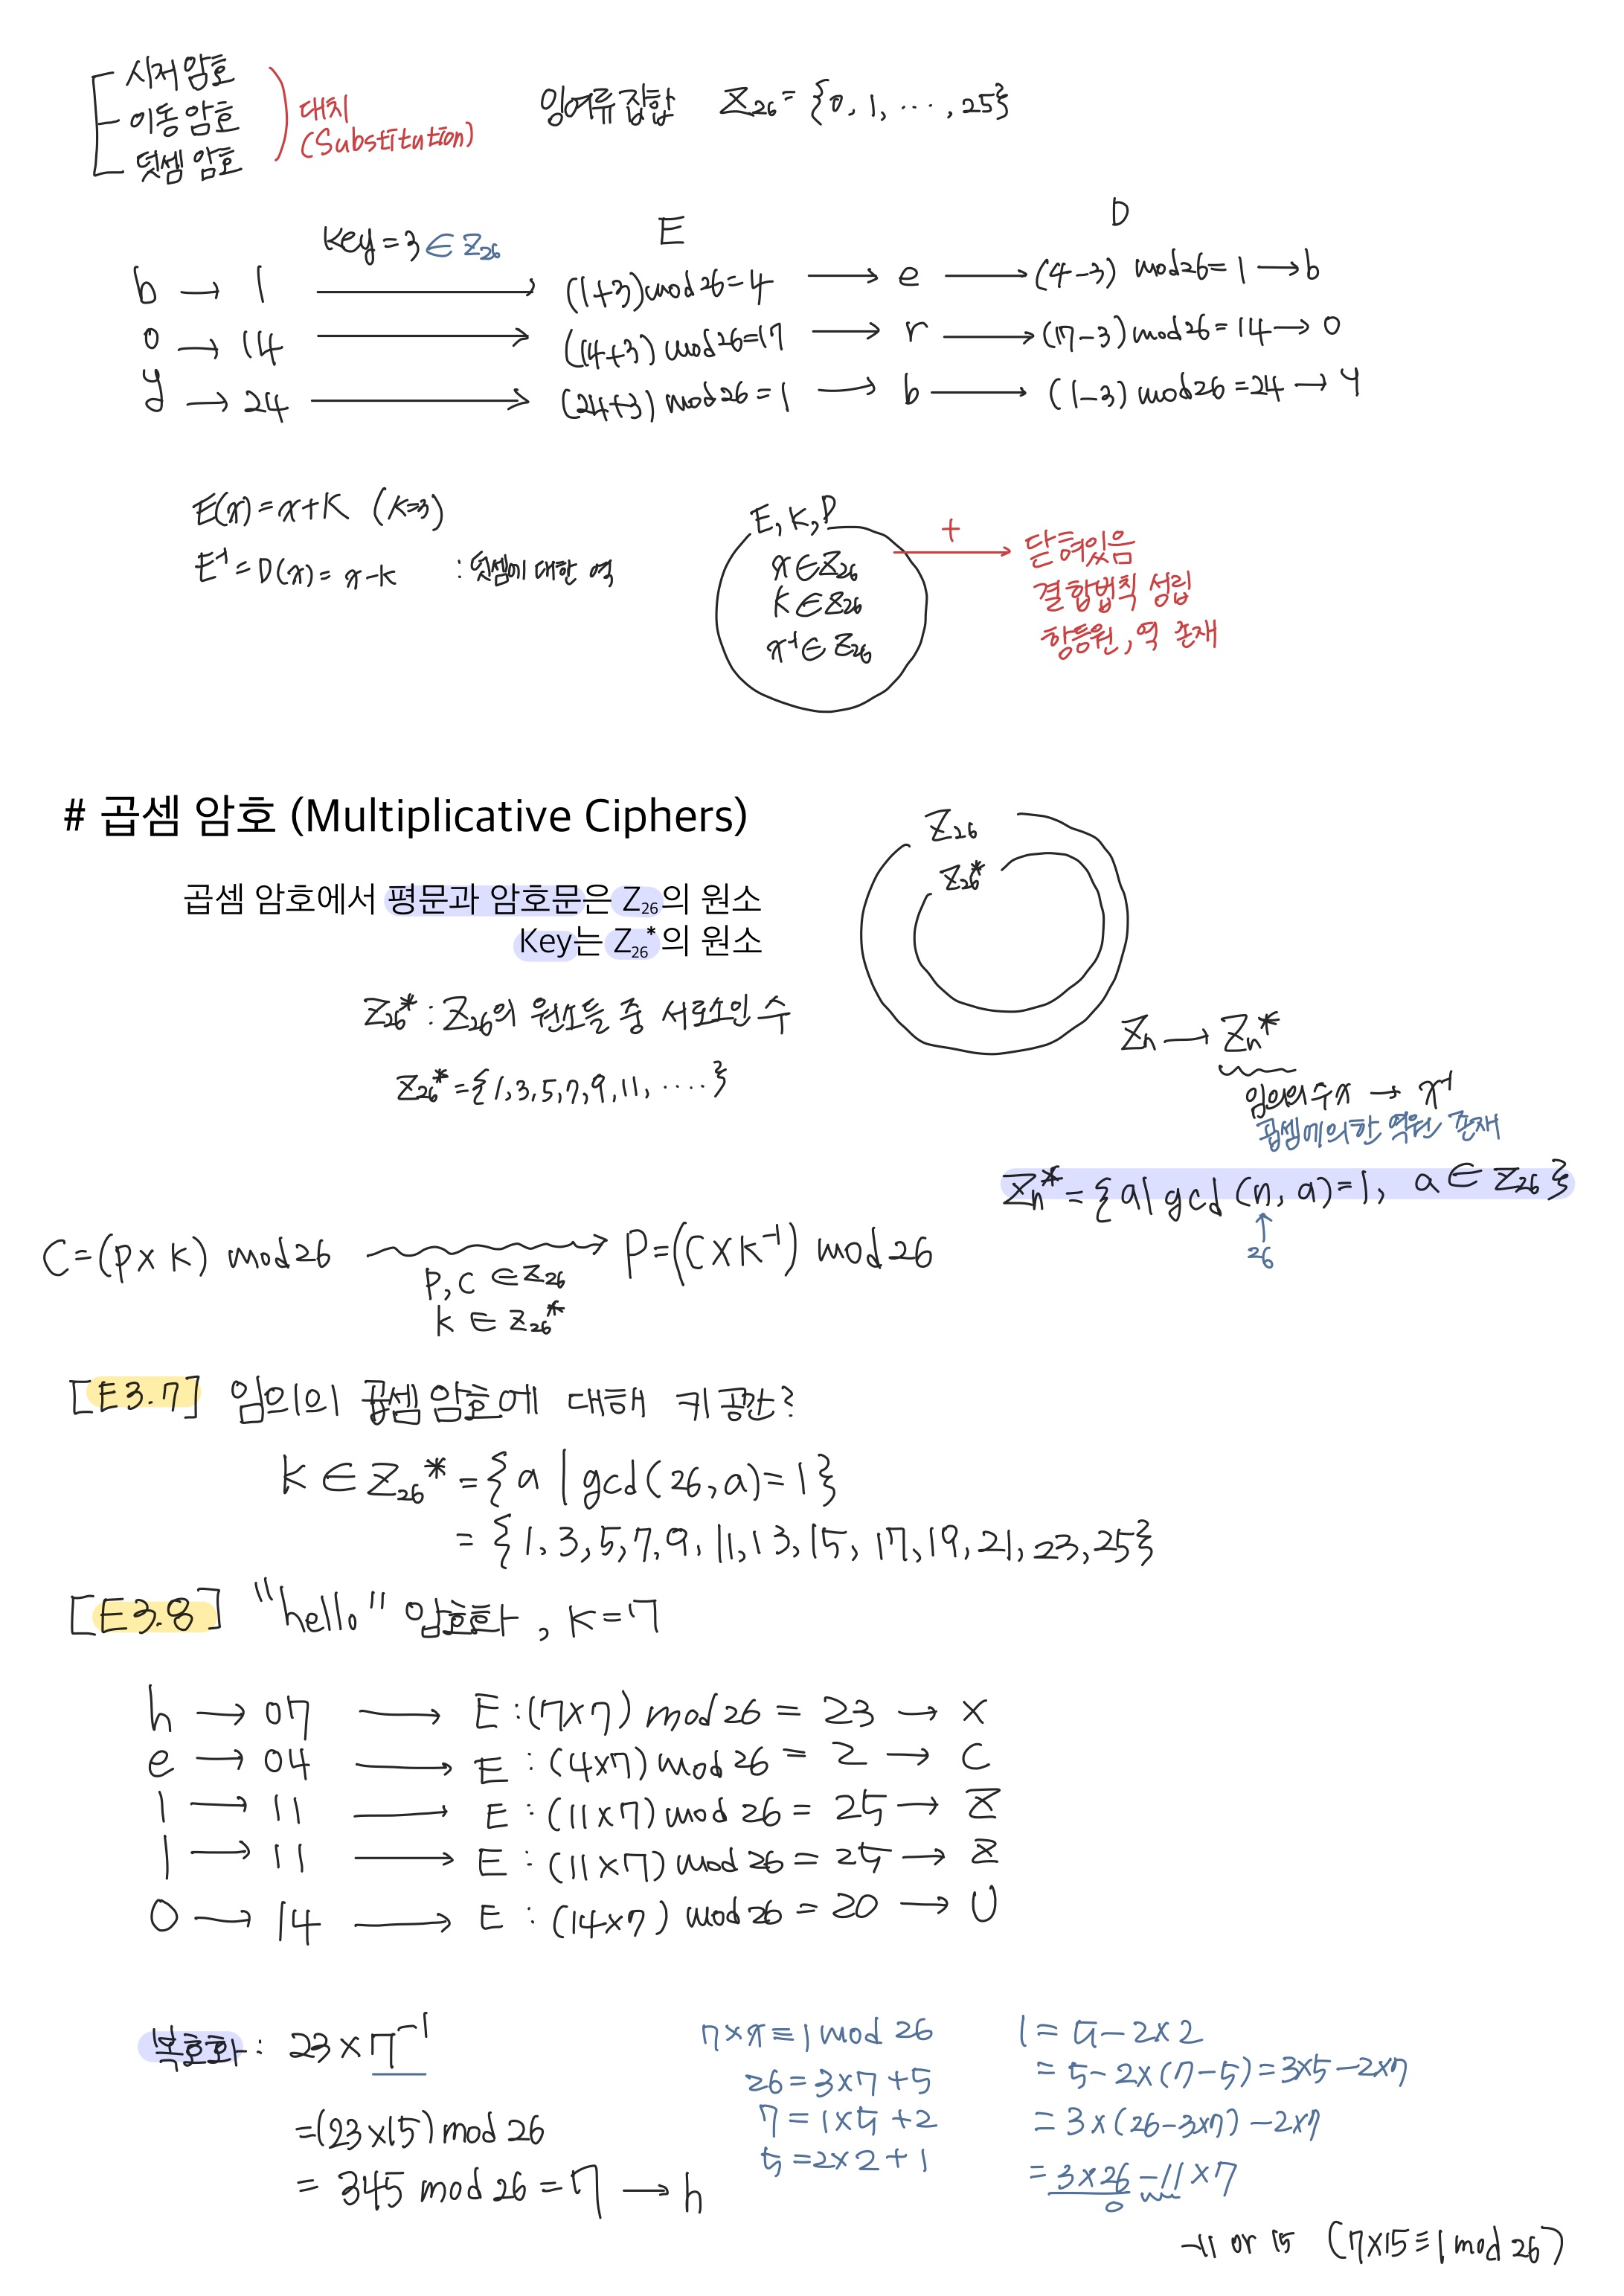 시저 암호
이동 암호
덧셈 암호
대치
(Substitution)
잉여류 집합 Z₂₆ = {0, 1, ..., 25}
Key = 3 ∈ Z₂₆
E
D
b → 1 → (1+3) mod 26 = 4 → e → (4-3) mod 26 = 1 → b
o → 14 → (14+3) mod 26 = 17 → r → (17-3) mod 26 = 14 → o
y → 24 → (24+3) mod 26 = 1 → b → (1-3) mod 26 = 24 → y
E(x) = x+K (K=3)
E⁻¹ = D(x) = x-k : 덧셈에 대한 역
E, K, P
x ∈ Z₂₆
K ∈ Z₂₆
x⁻¹ ∈ Z₂₆
+
닫혀있음
결합법칙 성립
항등원, 역 존재
# 곱셈 암호 (Multiplicative Ciphers)
Z₂₆
Z₂₆*
곱셈 암호에서 평문과 암호문은 Z₂₆의 원소
Key는 Z₂₆*의 원소
Z₂₆* : Z₂₆의 원소들 중 서로소인 수
Z₂₆* = {1, 3, 5, 7, 9, 11, .....}
Zn → Zn*
임의의 수 x → x⁻¹
곱셈에 의한 역원 존재
Zn* = {a | gcd (n, a) = 1, a ∈ Z₂₆}
↑
26
C = (P x K) mod 26 → P = (C X K⁻¹) mod 26
P, C ∈ Z₂₆
k ∈ Z₂₆*
[E 3.7] 임의의 곱셈 암호에 대해 키 공간?
K ∈ Z₂₆* = {a | gcd(26, a) = 1}
= {1, 3, 5, 7, 9, 11, 13, 15, 17, 19, 21, 23, 25}
[E 3.8] "hello" 암호화, K = 7
h → 07 → E : (7x7) mod 26 = 23 → X
e → 04 → E : (4x7) mod 26 = 2 → C
l → 11 → E : (11x7) mod 26 = 25 → Z
l → 11 → E : (11x7) mod 26 = 25 → Z
o → 14 → E : (14x7) mod 26 = 20 → U
복호화 : 23 x 7⁻¹
= (23 x 15) mod 26
= 345 mod 26 = 7 → h
7 x x ≡ 1 mod 26
26 = 3x7 + 5
7 = 1x5 + 2
5 = 2x2 + 1
1 = 5 - 2x2
= 5 - 2x(7-5) = 3x5 - 2x7
= 3 x (26 - 3x7) - 2x7
= 3x26 - 11 x 7
0
-11 or 15 (7x15 ≡ 1 mod 26)